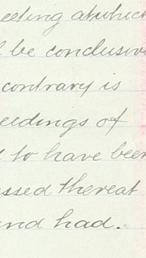 eeting at which
l be conclusive
contrary is
eedings of
d to have been
assed thereat
and had.